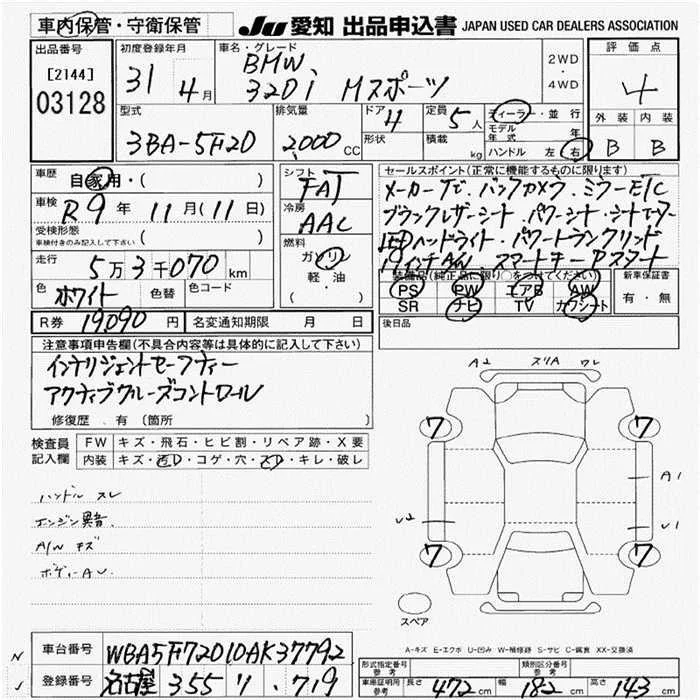 車内保管・守衛保管
JU 愛知 出品申込書 JAPAN USED CAR DEALERS ASSOCIATION
出品番号 初度登録年月 車名・グレード 2WD・4WD 評価点
[2144] 31年 4月 BMW 4
03128 320i Mスポーツ
型式 排気量 ドア 4 定員 5人 ディーラー・並行 外装 内装
3BA-5F20 2,000 CC 形状 積載 kg モデル年式 年 B B
ハンドル 左 右
車歴 自家用・( ) シフト FAT セールスポイント(正常に機能するものに限ります)
車検 R9年 11月(11日) 冷房 AAC メーカーナビ バックカメラ ミラーETC
受検形態 ブラックレザーシート・パワーシート・シートヒーター
車検付きのみ記入して下さい ( ) 燃料 LEDヘッドライト・パワートランクリッド
走行 5万3千070km ガソリン 軽・油 ( ) 17インチAW スマートキー Pスタート
装備品(純正品に限り○をつけてください) 新車保証書
色 ホワイト 色替 色コード PS PW エアB AW 有・無
SR ナビ TV カワシート
R券 19,090円 名変通知期限 月 日 後日品
注意事項申告欄(不具合内容等は具体的に記入して下さい)
インテリジェントセーフティー
アクティブクルーズコントロール
修復歴 . 有 (箇所
A2 スリA ワレ
7 7
検査員 FW キズ・飛石・ヒビ割・リペア跡・X要
記入欄 内装 キズ・凹D・コゲ・穴・スD・キレ・破レ
A1
ハンドル スレ
エンジン異音.
U2 U1
A/W キズ
7 7
ボディーAU
スペア
A-キズ E-エクボ U-凹み W-補修跡 S-サビ C-腐食 XX-交換済
N 車台番号 WBA5F72010AK37792
J 登録番号 名古屋 355 リ 719
形式指定番号 参考 類別区分番号 参考
車庫証明用 参考 長さ 472cm 幅 182cm 高さ 143cm